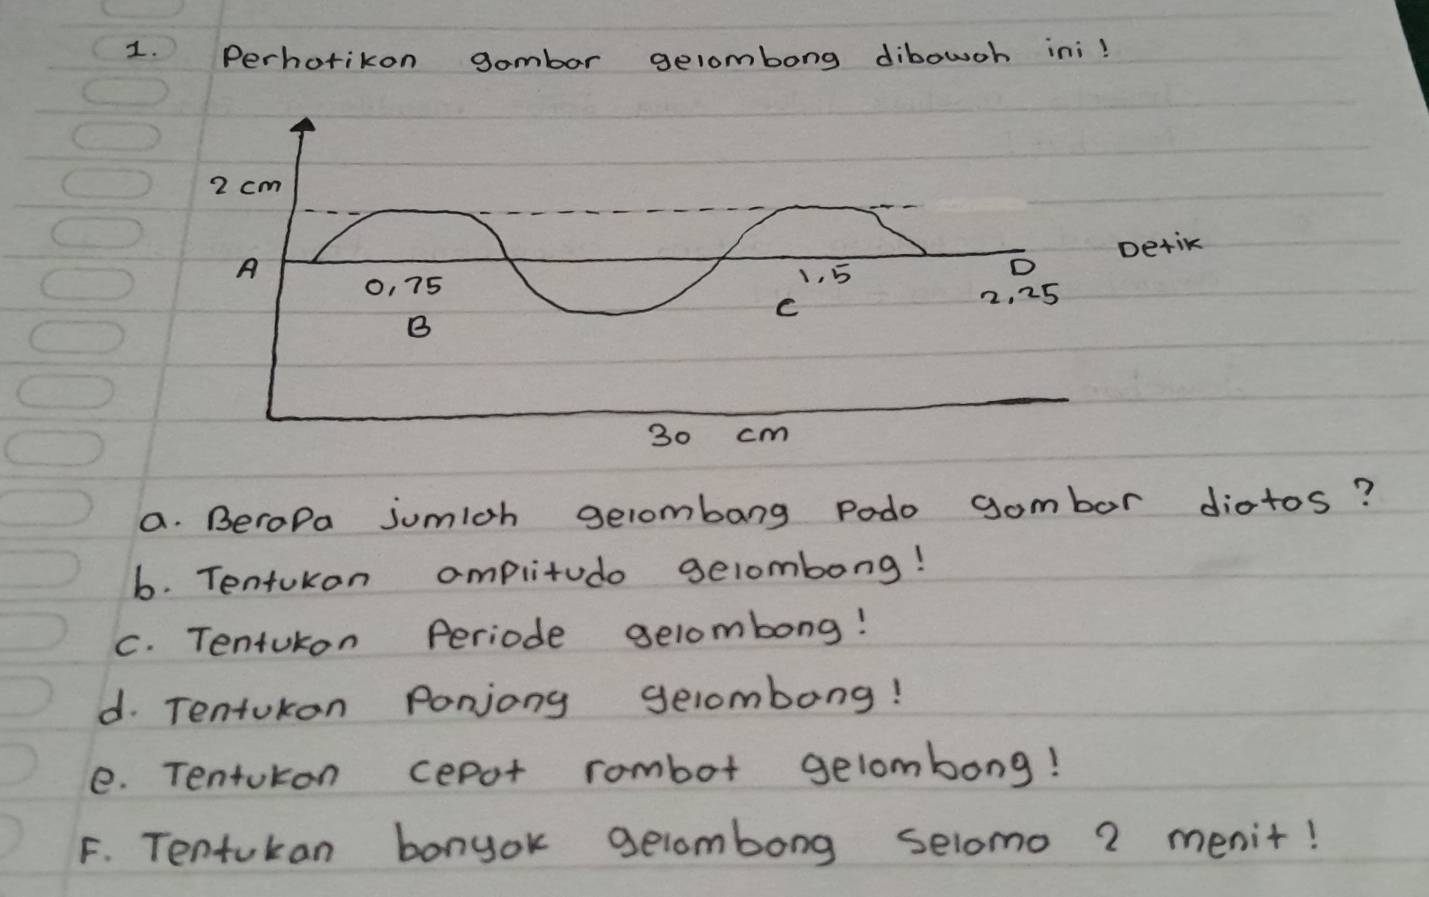 1. Perhatikan gambar gelombang dibawah ini!
2 cm
A
Detik
0,75
1,5
D
B
C
2,25
30 cm
a. Berapa jumlah gelombang pada gambar diatas?
b. Tentukan amplitudo gelombang!
c. Tentukan Periode gelombang!
d. Tentukan Panjang gelombang!
e. Tentukan cepat rambat gelombang!
F. Tentukan banyak gelombang selama 2 menit!